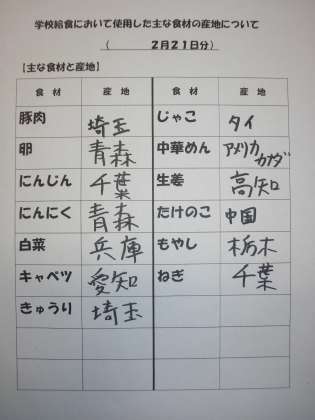 学校給食において使用した主な食材の産地について
( 2月21日分)
【主な食材と産地】
食材 産地 食材 産地
豚肉 埼玉 じゃこ タイ
卵 青森 中華めん アメリカ カナダ
にんじん 千葉 生姜 高知
にんにく 青森 たけのこ 中国
白菜 兵庫 もやし 栃木
キャベツ 愛知 ねぎ 千葉
きゅうり 埼玉